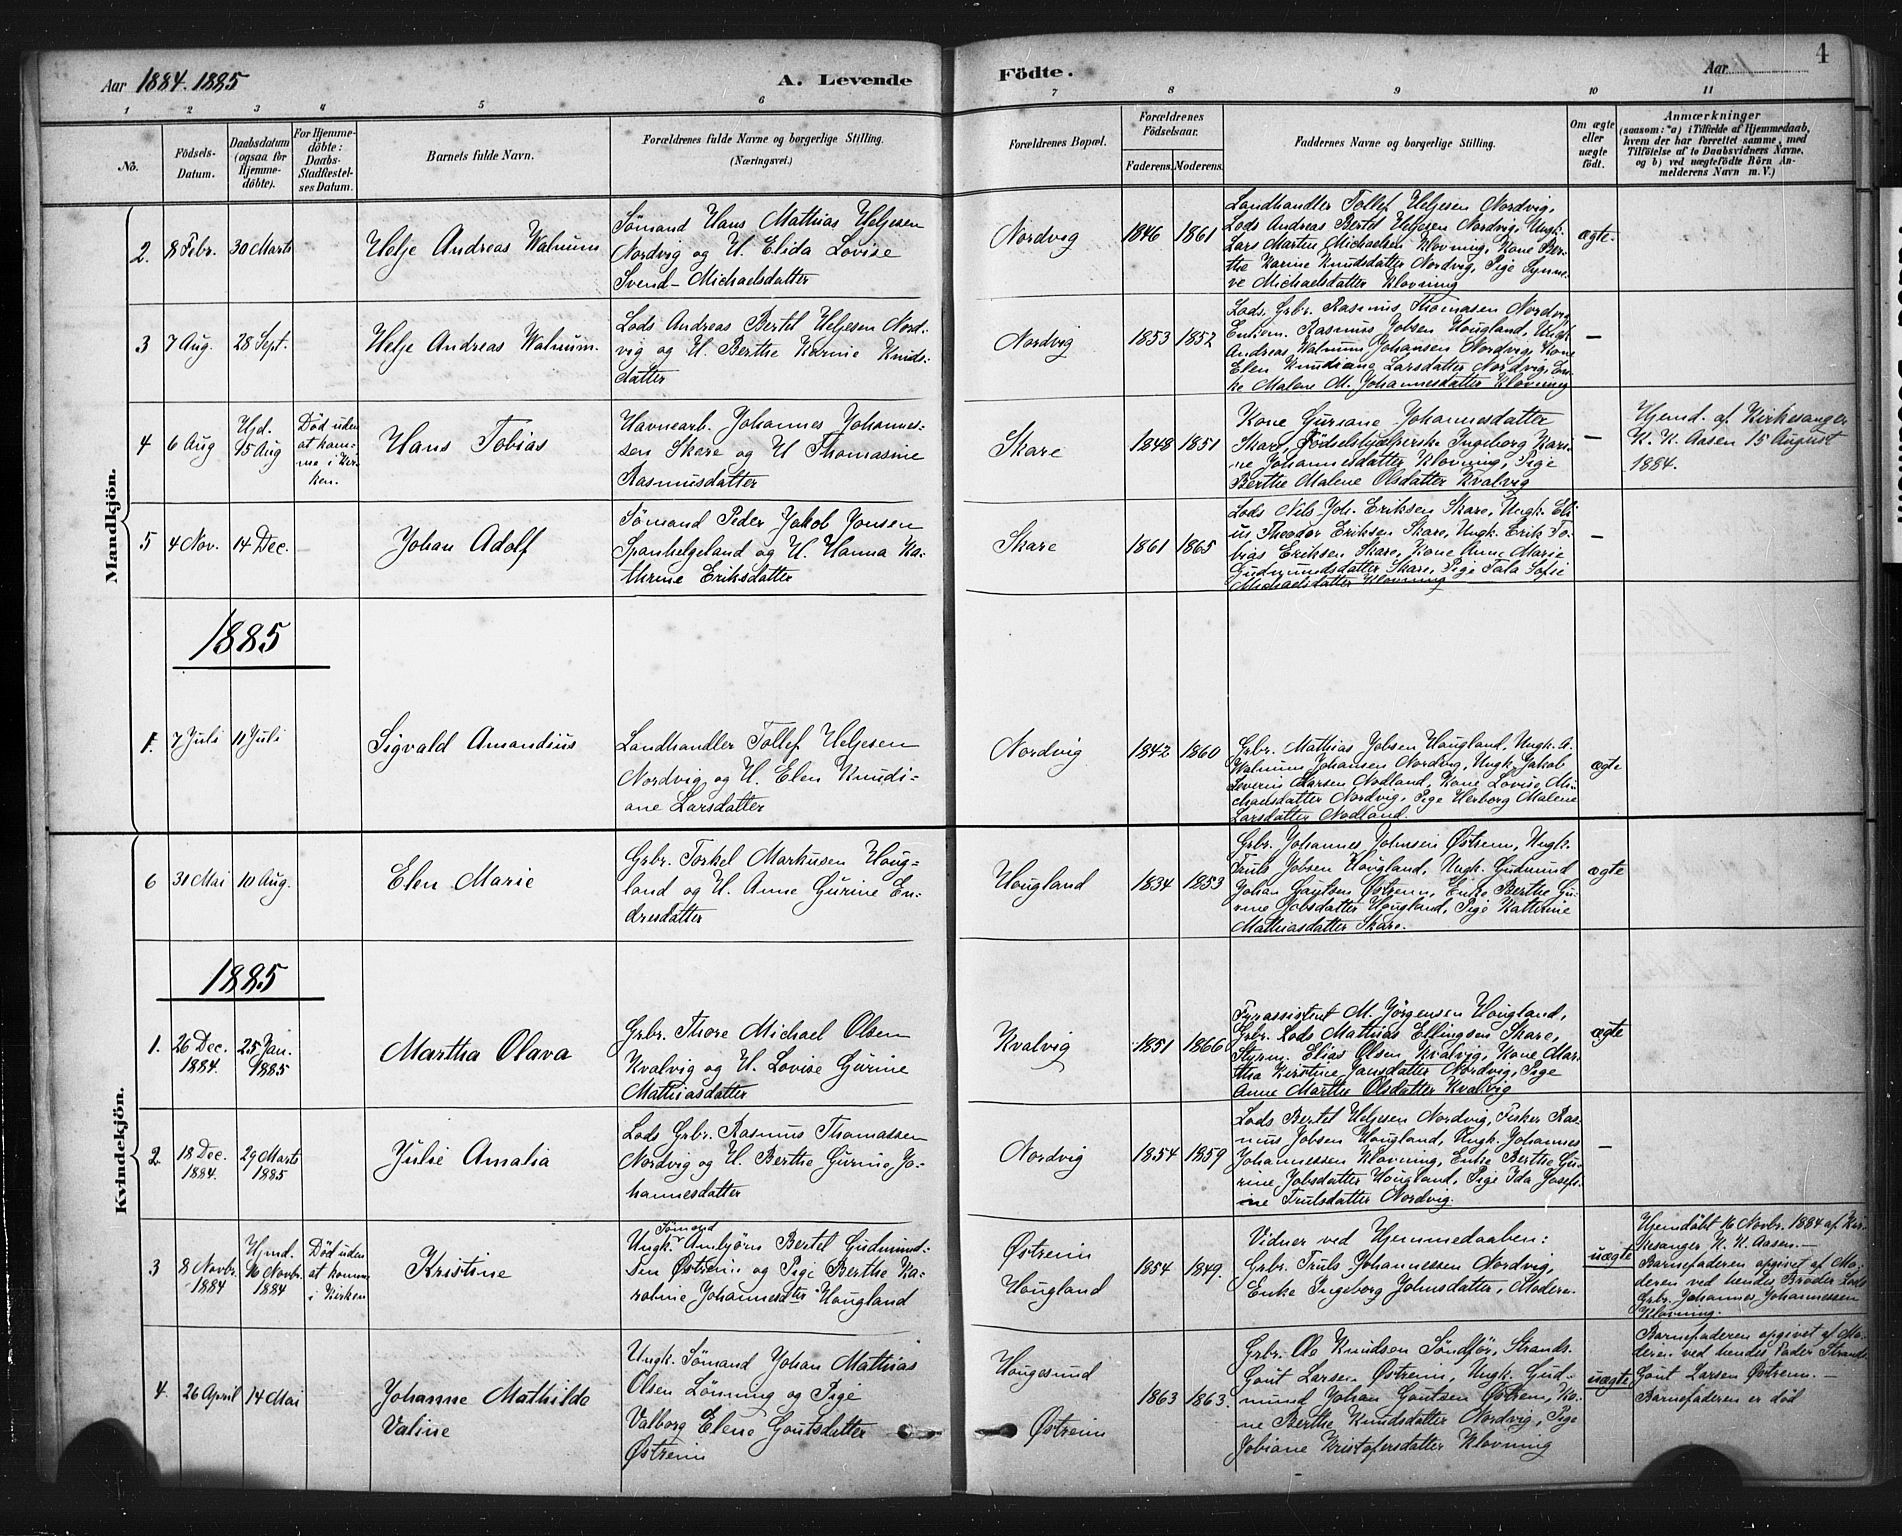 Aar 1884. 1885
A. Levende
Födte.
Aar
4
1 2 3 4 5 6 7 8 9 10 11
No.
Födsels-
Datum.
Daabsdatum
(ogsaa for
Hjemme-
döbte).
For Hjemme-
döbte:
Daabs-
Stadfæstel-
ses Datum.
Barnets fulde Navn.
Forældrenes fulde Navne og borgerlige Stilling.
(Næringsvei.)
Forældrenes Bopæl.
Forældrenes
Födselsaar.
Faderens.
Moderens.
Faddernes Navne og borgerlige Stilling.
Om ægte
eller
uægte
födt.
Anmærkninger
(saasom: a) i Tilfælde af Hjemmedaab,
hvem der har forrettet samme, med
Tilföielse af to Daabsvidners Navne,
og b) ved uægtefödte Börn An-
melderens Navn m. V.)
Mandkjön.
2. 8 Febr. 30 Marts
Helje Andreas Walnum
Sømand Hans Mathias Heljesen
Nordvig og H. Elida Lovise
Svend- Michaelsdatter
Nordvig
1846 1861
Landhandler Tollef Heljesen Nordvig,
Lods Andreas Bertel Heljesen Nordvig, Ungk.
Lars Martin Michaelsen Klovning, Kone Ber-
the Karine Knudsdatter Nordvig, Pige Synne-
ve Michaelsdatter Klovning
ægte.
3 7 Aug. 28 Sept.
Helje Andreas Walnum.
Lods Andreas Bertel Heljesen Nord-
vig og H. Berthe Karine Knuds-
datter
Nordvig
1853 1852
Lods. Grbr. Rasmus Thomasen Nordvig
Enkem. Rasmus Jobsen Hougland, Ungk.
Andreas Walnum Johansen Nordvig, Kone
Elen Knudiane Larsdatter Nordvig, En-
ke Malene M. Johannesdatter Klovning
—
4 6 Aug
Hjd.
15 Aug
Død uden
at kom-
me i Kir-
ken.
Hans Tobias
Havnearb. Johannes Johannes-
sen Skare og H Thomasine
Rasmusdatter
Skare
1848 1851
Kone Gurine Johannesdatter
Skare, Fødselshjælperske Ingeborg Kari-
ne Johannesdatter Klovning, Pige
Berthe Malene Olsdatter Kvalvig
—
Hjemd. af Kirkesanger
K. K. Aasen 15 August
1884.
5 4 Nov. 14 Dec.
Johan Adolf
Sømand Peder Jakob Jonsen
Spanhelgeland og H. Hanna Ka-
thrine Eriksdatter
Skare
1861 1865
Lods Nils Joh. Eriksen Skare, Ungk. Eli-
us Theodor Eriksen Skare, Ungk. Erik To-
bias Eriksen Skare, Kone Anne Marie
Gudmundsdatter Skare, Pige Tala Sofie
Michaelsdatter Klovning
—
1885
1. 7 Juli 11 Juli
Sigvald Amandius
Landhandler Tollef Heljesen
Nordvig og H. Elen Knudi-
ane Larsdatter
Nordvig
1842 1860
Grbr. Mathias Jobsen Hougland, Ungk. A.
Walnum Johansen Nordvig, Ungk. Jakob
Severin Larsen Nodland, Kone Lovise Mi-
chaelsdatter Nordvig, Pige Herborg Malene
Larsdatter Nodland.
ægte
Kvindekjön.
6 31 Mai 10 Aug.
Elen Marie
Grbr. Torkel Markusen Houg-
land og H. Anne Gurine En-
dresdatter
Hougland
1834 1853
Grbr. Johannes Johnsen Østrem, Ungk.
Truls Jobsen Hougland, Ungk. Gudmund
Johan Goutsen Østrem, Enke Berthe Gu-
rine Jobsdatter Hougland, Pige Kathrine
Mathiasdatter Skare.
ægte
1885
1. 26 Dec.
1884.
25 Jan.
1885
Martha Olava
Grbr. Thore Michael Olsen
Kvalvig og H. Lovise Gurine
Mathiasdatter
Kvalvig
1851 1866
Fyrassistent M. Jørgensen Hougland,
Grbr. Lods Mathias Ellingsen Skare,
Styrm. Elias Olsen Kvalvig, Kone Mar-
tha Kirstine Jansdatter Nordvig, Pige
Anne Marthe Olsdatter Kvalvig
ægte
2 18 Dec.
1884.
29 Marts
1885
Julie Amalia
Lods Grbr. Rasmus Thomassen
Nordvig og H. Berthe Gurine Jo-
hannesdatter
Nordvig
1854 1859
Lods Bertel Heljesen Nordvig, Fisker Ras-
mus Jobsen Hougland, Ungk. Johannes
Johannessen Klovning, Enke Berthe Gu-
rine Jobsdatter Hougland, Pige Ida Josefi-
ne Trulsdatter Nordvig.
—
3 8 Novbr.
1884
Hjmd.
16 Novbr.
1884
Død uden
at komme
i Kirken
Kristine
Sømand
Ungk. Anbjørn Bertel Gudmund-
sen Østrem og Pige Berthe Ka-
roline Johannesdatter Hougland
Østrem
Hougland
1854 1849.
Vidner ved Hjemmedaaben:
Grbr. Truls Johannessen Nordvig,
Enke Ingeborg Johnsdatter, Modere.
uægte
Hjemdøbt 16 Novbr. 1884 af Kir-
kesanger K. K. Aasen. —
Barnefaderen opgivet af Mo-
deren ved hendes Broder Lods
Grbr. Johannes Johannessen
Klovning.
4. 26 April 14 Mai
Johanne Mathilde
Valine
Ungk. Sømand Johan Mathias
Olsen Lønning og Pige
Valborg Elene Goutsdatter
Østrem
Hougesund
Østrem
1863 1863.
Grbr. Ole Knudsen Søndfjør, Strands.
Gout Larsen Østrem, Ungk. Gud-
mund Johan Goutsen Østrem, Ko-
ne Berthe Knudsdatter Nordvig, Pige
Jobiane Kristofersdatter Klovning
uægte
Barnefaderen opgivet af Mo-
deren ved hendes Fader Strands.
Gout Larsen Østrem. —
Barnefaderen er død